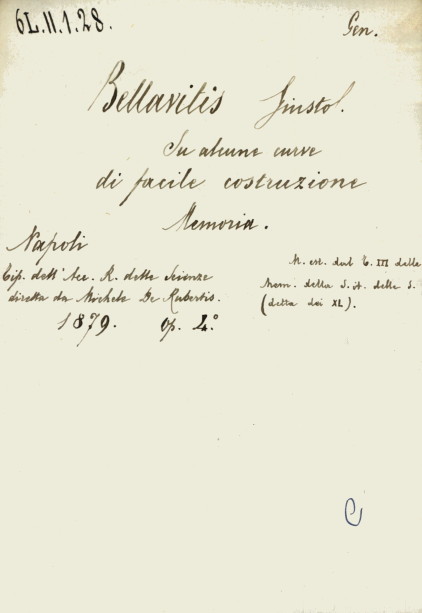 6L.II.1.28.
Gen.
Bellavitis Giusto.
Su alcune curve
di facile costruzione
Memoria.
Napoli
Tip. dell' Acc. R. delle Scienze
diretta da Michele De Rubertis.
1879. Op. 4.º
M. est. dal T. III delle
Mem. della S. it. delle S.
(detta dei XL).
C